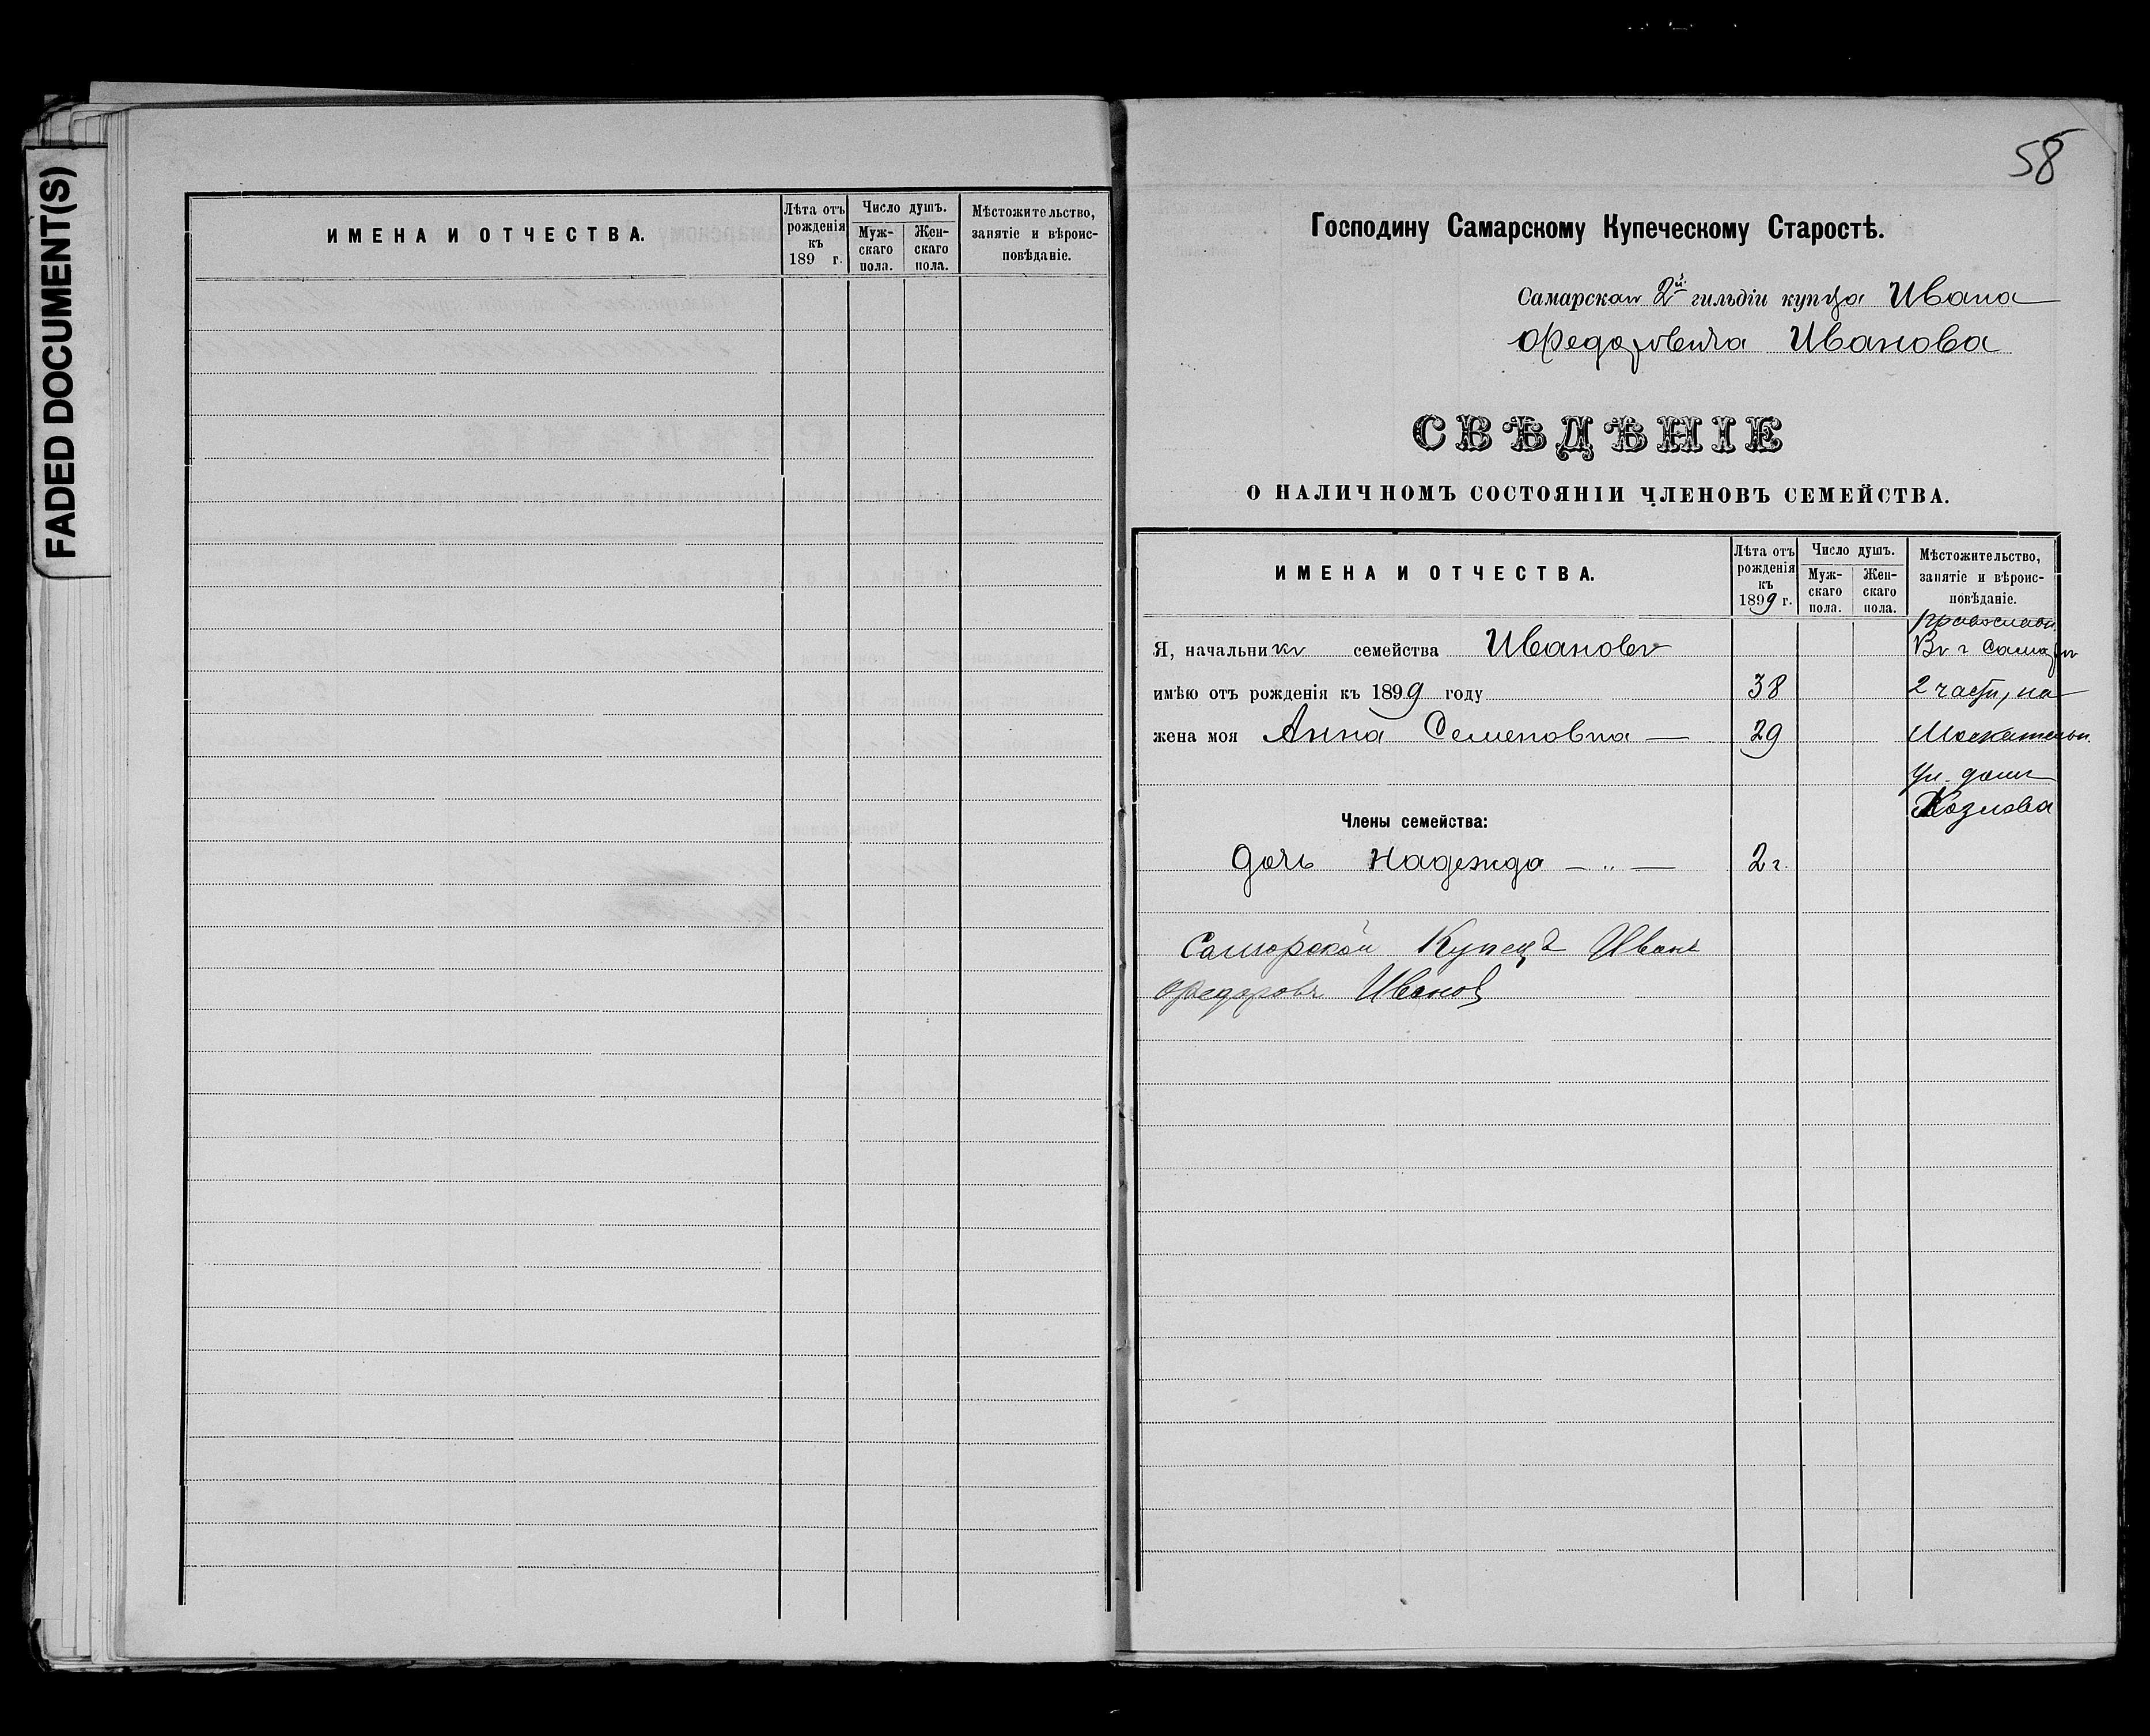 FADED DOCUMENT(S)
ИМЕНА И ОТЧЕСТВА.
Лѣта отъ рожденія къ 189 г.
Число душъ.
Мужскаго пола.
Женскаго пола.
Мѣстожительство, занятіе и вѣроисповѣданіе.
58
Господину Самарскому Купеческому Старостѣ.
Самарскаго 2й гильдіи купца Ивана
Федоровича Иванова
СВѢДѢНІЕ
О НАЛИЧНОМЪ СОСТОЯНІИ ЧЛЕНОВЪ СЕМЕЙСТВА.
ИМЕНА И ОТЧЕСТВА.
Лѣта отъ рожденія къ 1899 г.
Число душъ.
Мужскаго пола.
Женскаго пола.
Мѣстожительство, занятіе и вѣроисповѣданіе.
православн.
Я, начальникъ семейства Ивановъ Въ г Самарѣ
имѣю отъ рожденія къ 1899 году 38 2 части, на
жена моя Анна Семеновна — 29 Москательн.
Ул. домъ
Козлова
Члены семейства:
дочь Надежда — „ — 2 г.
Самарской Купецъ Иванъ
Федоровъ Иванов